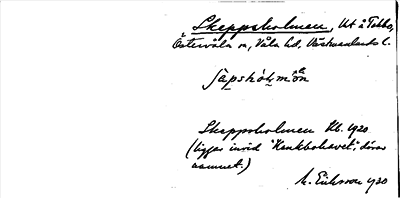 Skeppsholmen, Ut å Tobbo,
Östervåla sn, Våla hd, Västmanlands l.
Skeppsholmen Kb. 1920
(ligger invid "Kankbohavet", därav
namnet.)
M. Eriksson 1930